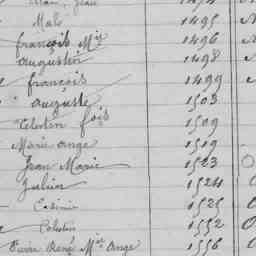 Jean 1494
Malo 1495
françois Mie 1496
augustin 1498
françois 1499
auguste 1503
Celestin fois 1509
Marie ange 1519
Jean Marie 1523
Julien 1524
Casimir 1525
Celestin 1552
Pierre René Mie Ange 1556